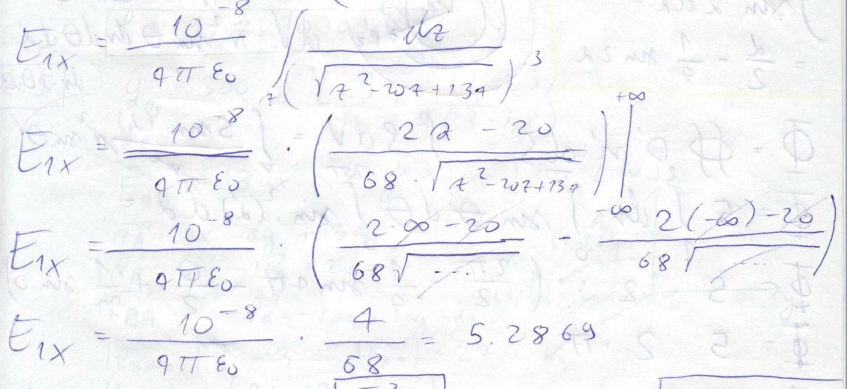 E1x = 10^-8 / 4πε0 ∫ dz / (√z²-20z+134)³
E1x = 10^-8 / 4πε0 · (2z - 20 / 68 · √z²-20z+134) |+∞ -∞
E1x = 10^-8 / 4πε0 · (2·∞-20 / 68√... - 2(-∞)-20 / 68√...)
E1x = 10^-8 / 4πε0 · 4 / 68 = 5.2869